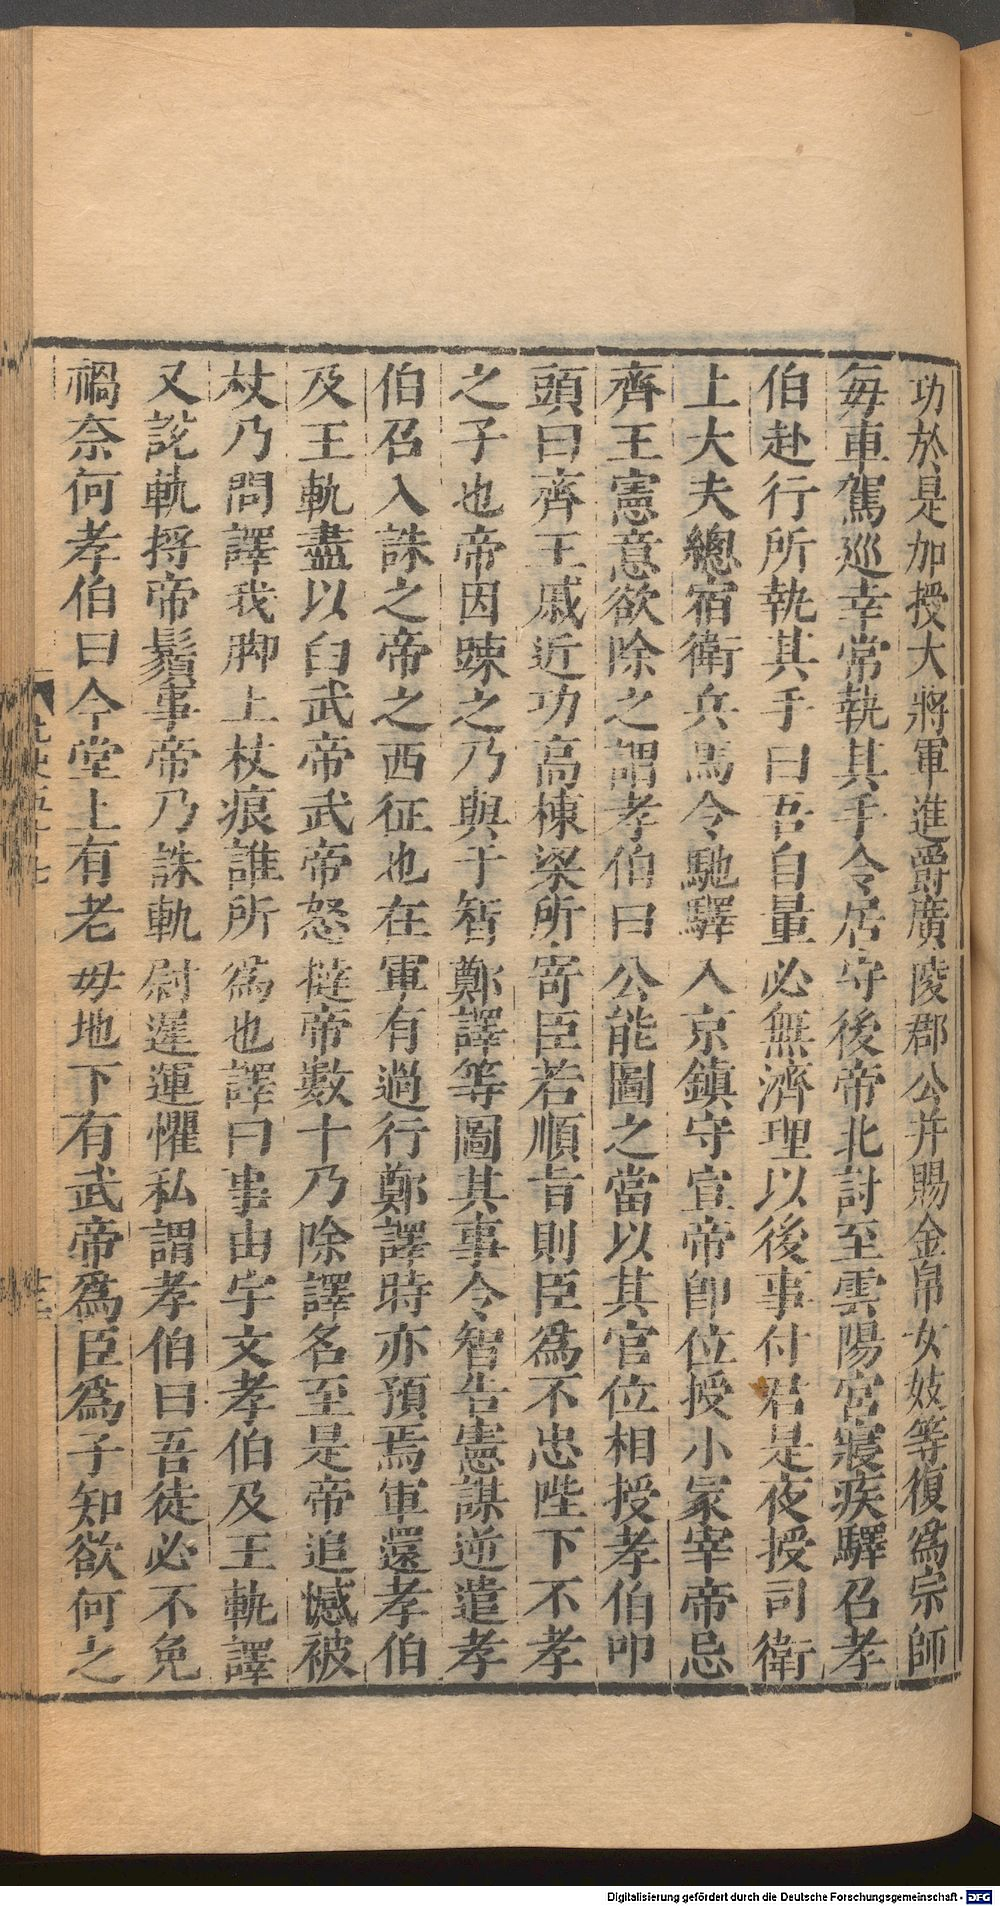 功於是加授大將軍進爵廣陵郡公并賜金帛女妓等復爲宗師
每車駕巡幸常執其手令居守後帝北討至雲陽宮寢疾驛召孝
伯赴行所執其手曰吾自量必無濟理以後事付君是夜授司衛
上大夫總宿衛兵馬令馳驛入京鎮守宣帝即位授小冢宰帝忌
齊王憲意欲除之謂孝伯曰公能圖之當以其官位相授孝伯叩
頭曰齊王戚近功高棟梁所寄臣若順旨則臣爲不忠陛下不孝
之子也帝因踈之乃與于智鄭譯等圖其事令智告憲謀逆遣孝
伯召入誅之帝之西征也在軍有過行鄭譯時亦預焉軍還孝伯
及王軌盡以白武帝武帝怒撻帝數十乃除譯名至是帝追憾被
杖乃問譯我脚上杖痕誰所爲也譯曰事由宇文孝伯及王軌譯
又說軌捋帝鬚事帝乃誅軌尉遲運懼私謂孝伯曰吾徒必不免
禍奈何孝伯曰今堂上有老母地下有武帝爲臣爲子知欲何之
Digitalisierung gefördert durch die Deutsche Forschungsgemeinschaft - DFG